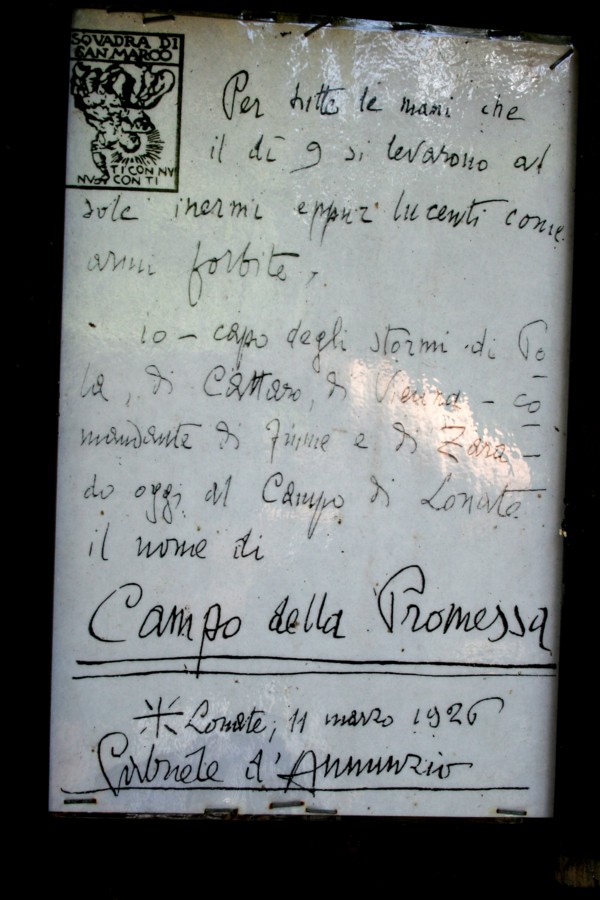 SQVADRA DI
SAN MARCO
TI CON NV
NVS CON TI
Per tutte le mani che
il dì 9 si levarono al
sole inermi eppur lucenti come
armi forbite,
io - capo degli stormi di Po
la, di Cattaro, di Vienna - co
mandante di Fiume e di Zara -
do oggi al Campo di Lonate
il nome di
Campo della Promessa
Lonate, 11 marzo 1926
Gabriele d'Annunzio